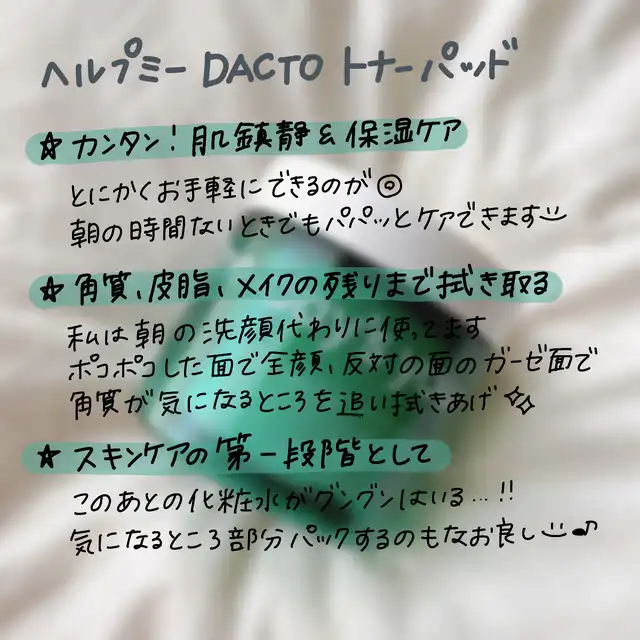 ヘルプミー DACTO トナーパッド
☆ カンタン! 肌鎮静 & 保湿ケア
とにかくお手軽にできるのが◎
朝の時間ないときでもパパッとケアできます
☆ 角質、皮脂、メイクの残りまで拭き取る
私は朝の洗顔代わりに使ってます
ポコポコした面で全顔、反対の面のガーゼ面で
角質が気になるところを追い拭きあげ
★ スキンケアの第一段階として
このあとの化粧水がグングンはいる…!!
気になるところ部分パックするのもなお良し♪